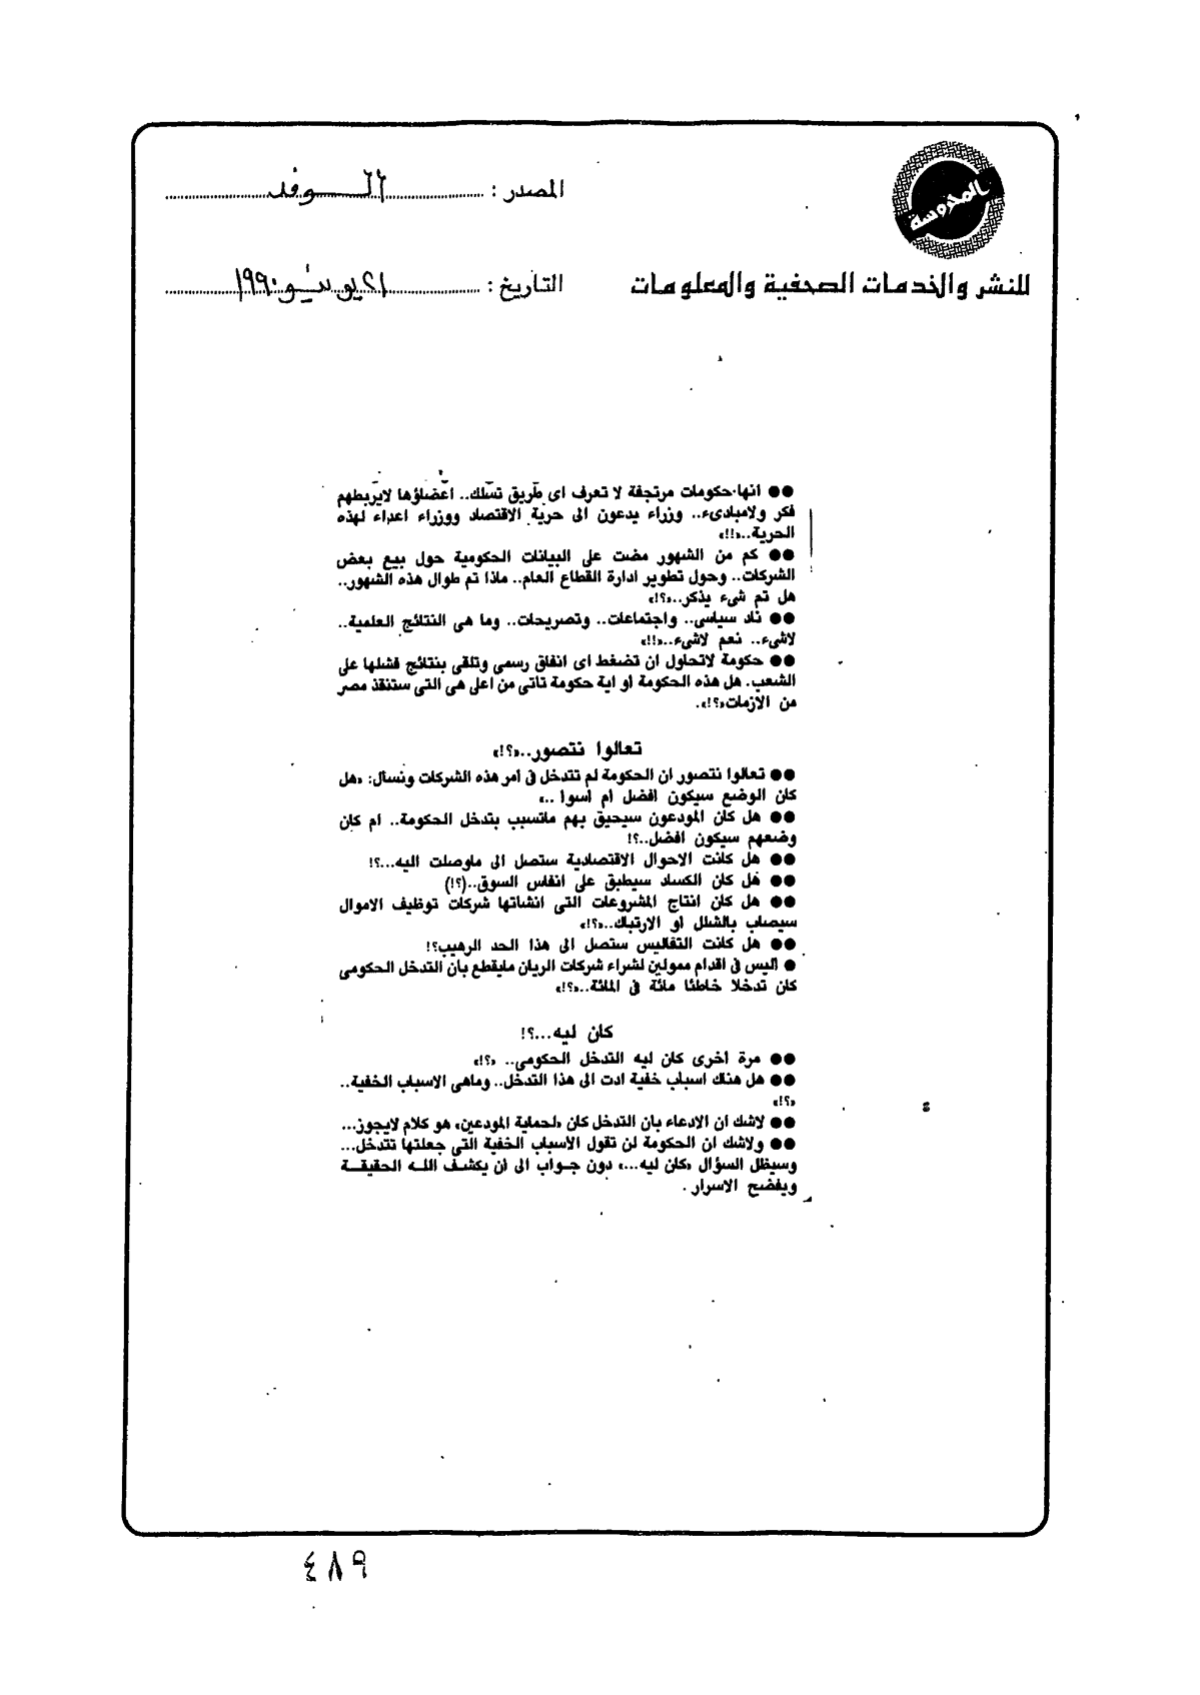 المحروسة
المصدر : الوفد
للنشر والخدمات الصحفية والمعلومات
التاريخ : ٢١ يونيو ١٩٩٠
●● انها حكومات مرتجفة لا تعرف اى طريق تسلك.. اعضاؤها لايربطهم
فكر ولامبادىء.. وزراء يدعون الى حرية الاقتصاد ووزراء اعداء لهذه
الحرية..«!!»
●● كم من الشهور مضت على البيانات الحكومية حول بيع بعض
الشركات.. وحول تطوير ادارة القطاع العام.. ماذا تم طوال هذه الشهور..
هل تم شىء يذكر..«؟!»
●● ناد سياسى.. واجتماعات.. وتصريحات.. وما هى النتائج العلمية..
لاشىء.. نعم لاشىء..«!!»
●● حكومة لاتحاول ان تضغط اى انفاق رسمى وتلقى بنتائج فشلها على
الشعب. هل هذه الحكومة او اية حكومة تاتى من اعلى هى التى ستنقذ مصر
من الازمات«؟!».
تعالوا نتصور..«؟!»
●● تعالوا نتصور ان الحكومة لم تتدخل فى امر هذه الشركات ونسال: «هل
كان الوضع سيكون افضل ام اسوا ..»
●● هل كان المودعون سيحيق بهم ماتسبب بتدخل الحكومة.. ام كان
وضعهم سيكون افضل..؟!
●● هل كانت الاحوال الاقتصادية ستصل الى ماوصلت اليه...؟!
●● هل كان الكساد سيطبق على انفاس السوق..(؟!)
●● هل كان انتاج المشروعات التى انشاتها شركات توظيف الاموال
سيصاب بالشلل او الارتباك..«؟!»
●● هل كانت التفاليس ستصل الى هذا الحد الرهيب؟!
● اليس فى اقدام ممولين لشراء شركات الريان مايقطع بان التدخل الحكومى
كان تدخلا خاطئا مائة فى المائة..«؟!»
كان ليه...؟!
●● مرة اخرى كان ليه التدخل الحكومى.. «؟!»
●● هل هناك اسباب خفية ادت الى هذا التدخل.. وماهى الاسباب الخفية..
«؟!»
●● لاشك ان الادعاء بان التدخل كان «لحماية المودعين» هو كلام لايجوز...
●● ولاشك ان الحكومة لن تقول الاسباب الخفية التى جعلتها تتدخل...
وسيظل السؤال «كان ليه...» دون جواب الى ان يكشف الله الحقيقة
ويفضح الاسرار .
٤٨٩